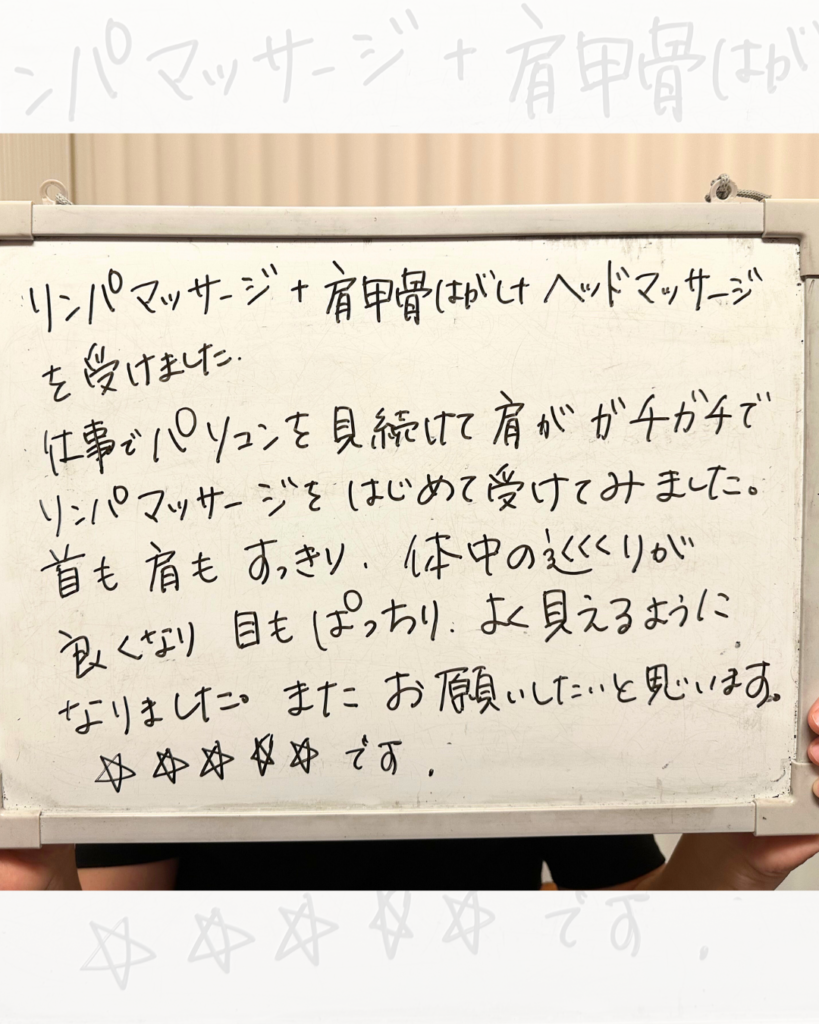 ンパマッサージ + 肩甲骨はが
リンパマッサージ + 肩甲骨はがし+ ヘッドマッサージ
を受けました.
仕事でパソコンを見続けて肩がガチガチで
リンパマッサージをはじめて受けてみました。
首も肩もすっきり. 体中の巡くくりが
良くなり 目もぱっちり. よく見えるように
なりました。またお願いしたいと思います。
☆☆☆☆☆ です.
☆☆☆☆☆ です.